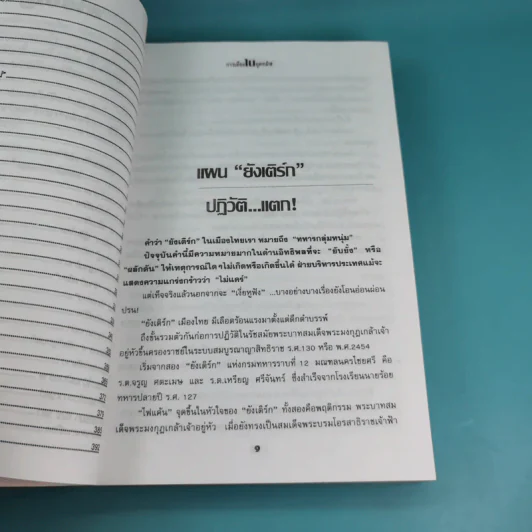 แผน “ยังเติร์ก”
ปฏิวัติ...แตก!
คำว่า “ยังเติร์ก” ในเมืองไทยเรา หมายถึง “ทหารกลุ่มหนุ่ม”
ปัจจุบันคำนี้มีความหมายมากในด้านอิทธิพลที่จะ “ยับยั้ง” หรือ
“ผลักดัน” ให้เหตุการณ์ใดๆ ไม่เกิดหรือเกิดขึ้นได้ ฝ่ายบริหารประเทศแม้จะ
แสดงความแกร่งกร้าวว่า “ไม่แคร์”
แต่เท็จจริงแล้วนอกจากจะ “เงี่ยหูฟัง” ...บางอย่างบางเรื่องยังโอนอ่อนผ่อน
ปรน!
“ยังเติร์ก” เมืองไทย มีเลือดร้อนแรงมาตั้งแต่ดึกดำบรรพ์
ถึงขั้นรวมตัวกันก่อการปฏิวัติในรัชสมัยพระบาทสมเด็จพระมงกุฎเกล้าเจ้า
อยู่หัวขึ้นครองราชย์ในระบบสมบูรณาญาสิทธิราช ร.ศ.130 หรือ พ.ศ.2454
เริ่มจากสอง “ยังเติร์ก” แห่งกรมทหารราบที่ 12 มณฑลนครไชยศรี คือ
ร.ต.จรูญ ศตะเมษ และ ร.ต.เหรียญ ศรีจันทร์ ซึ่งสำเร็จจากโรงเรียนนายร้อย
ทหารบกปลายปี ร.ศ. 127
“ไฟแค้น” จุดขึ้นในหัวใจของ “ยังเติร์ก” ทั้งสองคือพฤติกรรม พระบาทสม
เด็จพระมงกุฎเกล้าเจ้าอยู่หัว เมื่อยังทรงเป็นสมเด็จพระบรมโอรสาธิราชเจ้าฟ้า
9